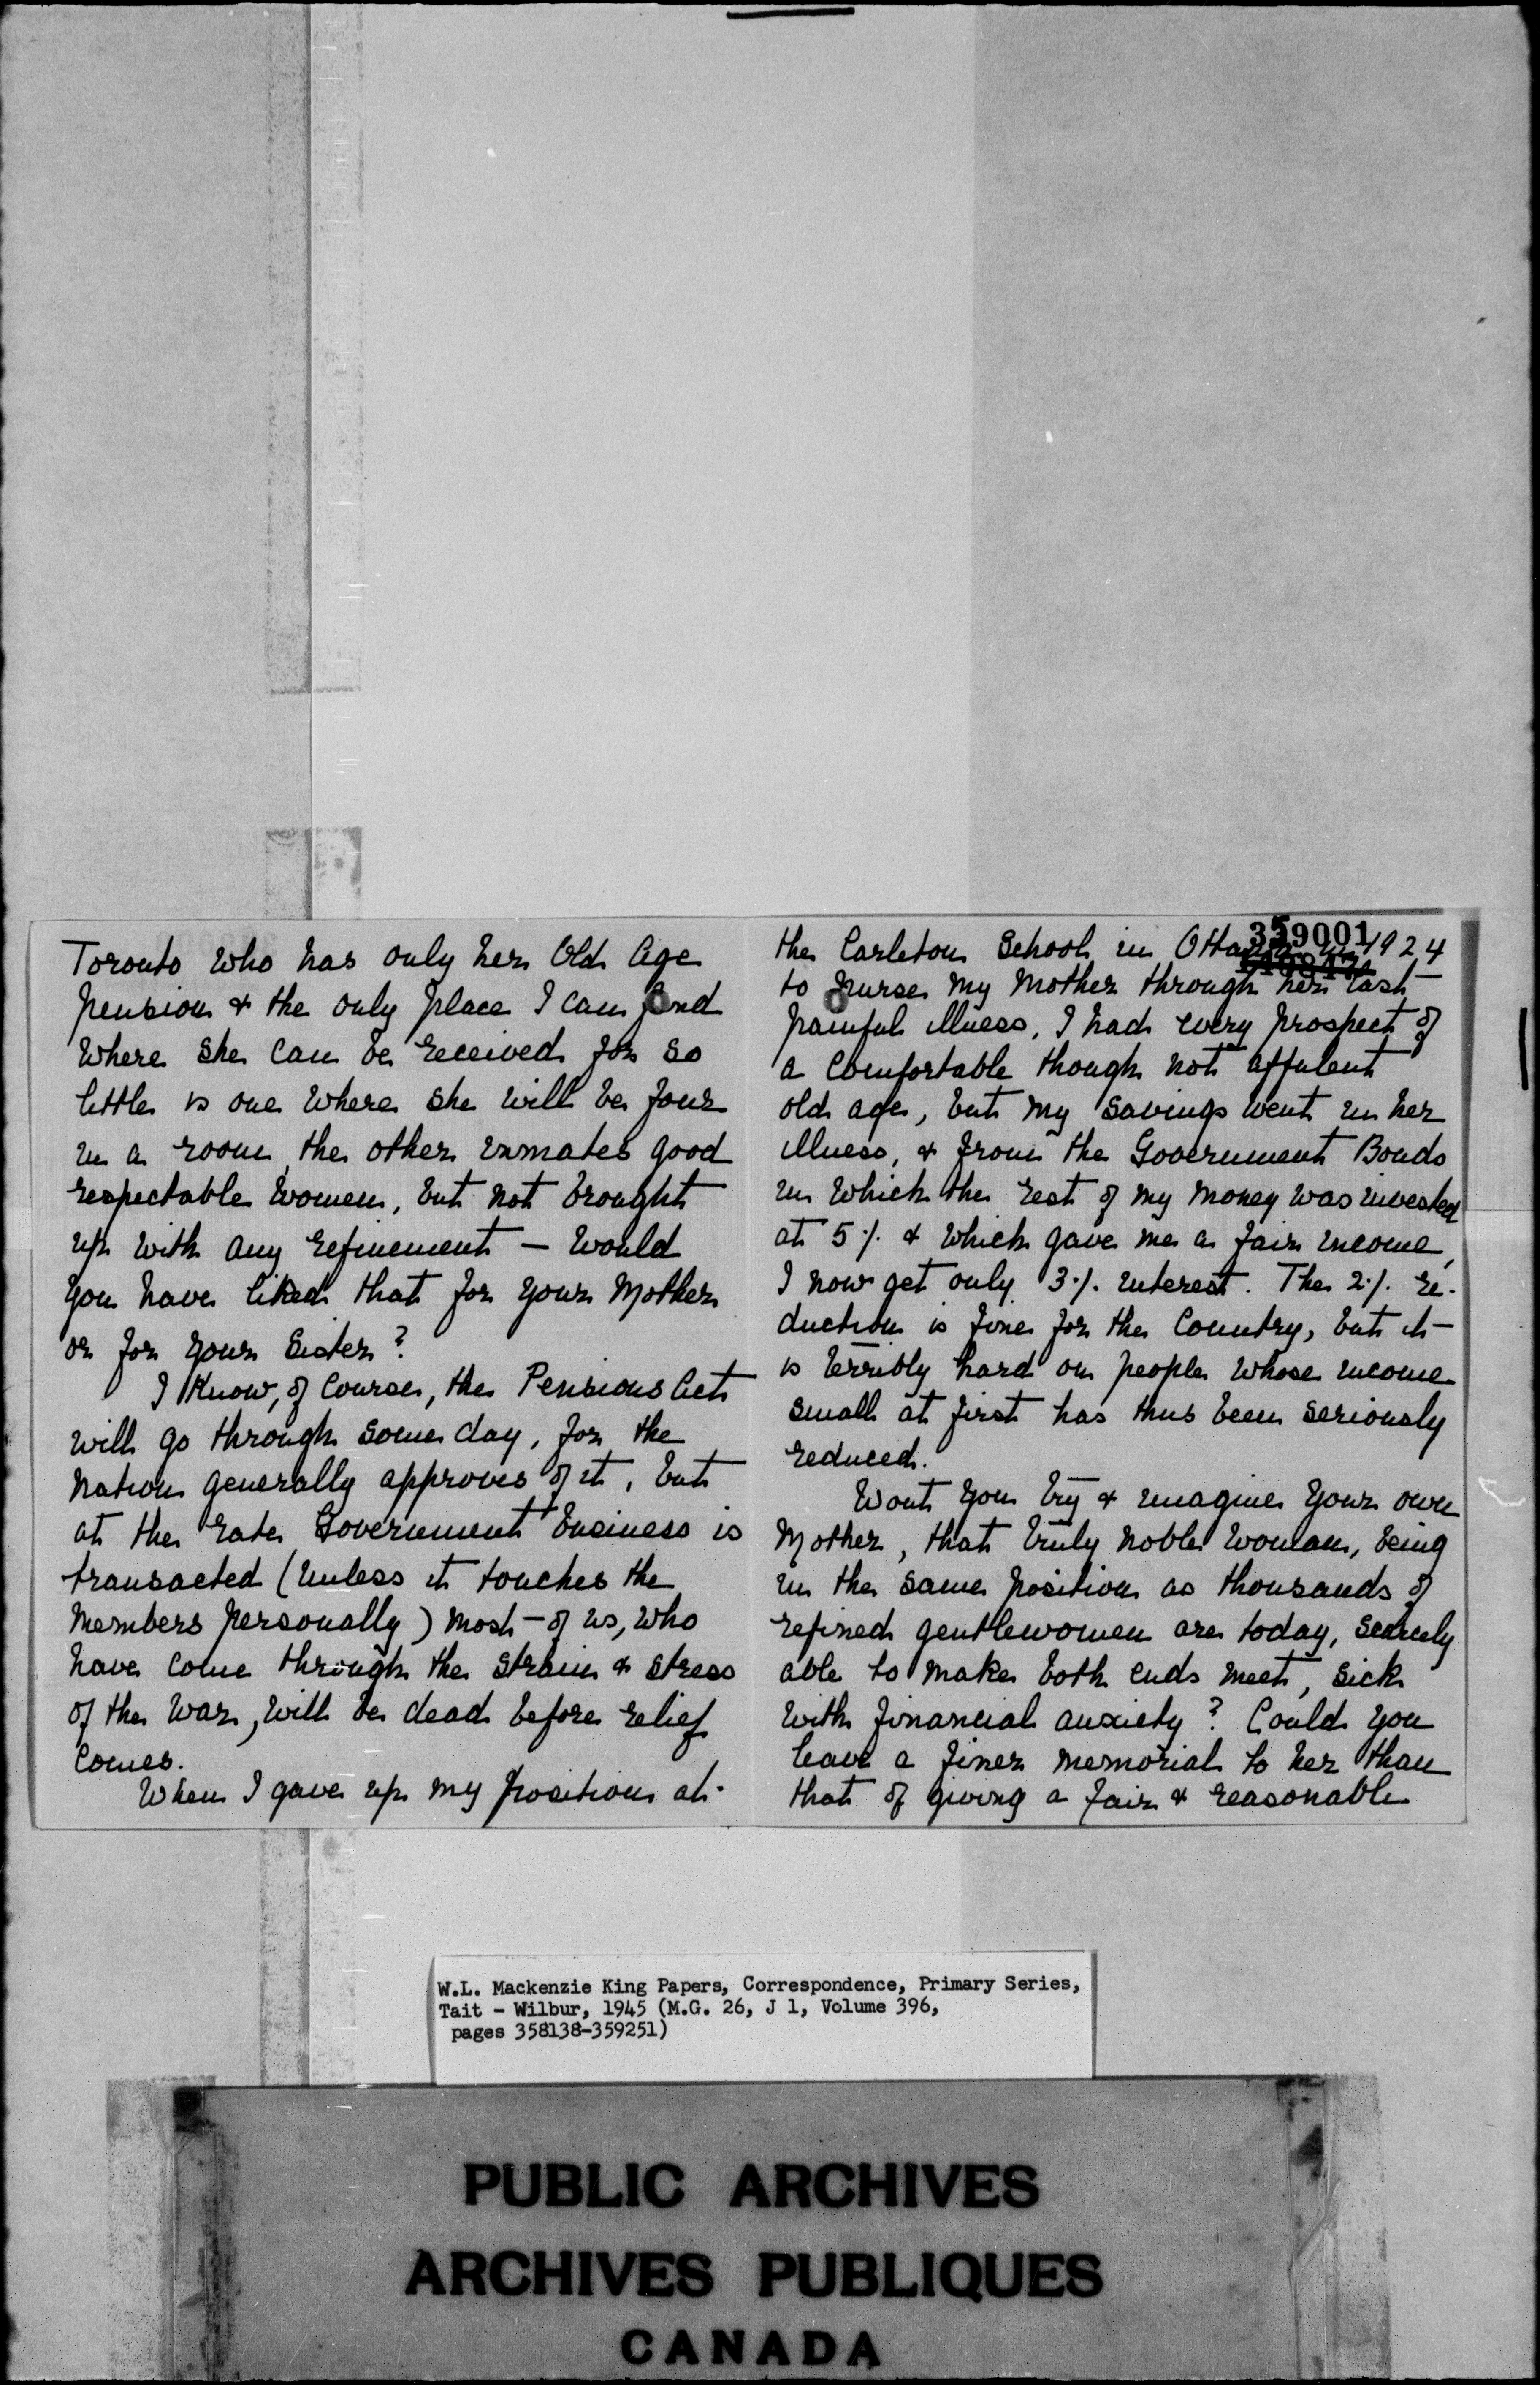 Toronto who has only her Old Age
pension & the only place I can find
where she can be received for so
little is one where she will be four
in a room, the other inmates good
respectable women, but not brought
up with any refinement — Would
you have liked that for your Mother
or for your Sister?
I know, of course, the Pensions Act
will go through some day, for the
nation generally approves of it, but
at the rate Government business is
transacted (unless it touches the
members personally) most of us, who
have come through the strain & stress
of the War, will be dead before relief
comes.
When I gave up my position at
359001
the Carleton School in Ottawa in 1924
to nurse my Mother through her last
painful illness, I had every prospect of
a comfortable though not affulent
old age, but my savings went in her
illness, & from the Government Bonds
in which the rest of my money was invested
at 5% & which gave me a fair income,
I now get only 3% interest. The 2% re-
duction is fine for the Country, but it
is terribly hard on people whose income
small at first has thus been seriously
reduced.
Wont you try & imagine your own
Mother, that truly noble woman, being
in the same position as thousands of
refined gentlewomen are today, scarcely
able to make both ends meet, sick
with financial anxiety? Could you
leave a finer memorial to her than
that of giving a fair & reasonable
W.L. Mackenzie King Papers, Correspondence, Primary Series,
Tait - Wilbur, 1945 (M.G. 26, J 1, Volume 396,
pages 358138-359251)
PUBLIC ARCHIVES
ARCHIVES PUBLIQUES
CANADA